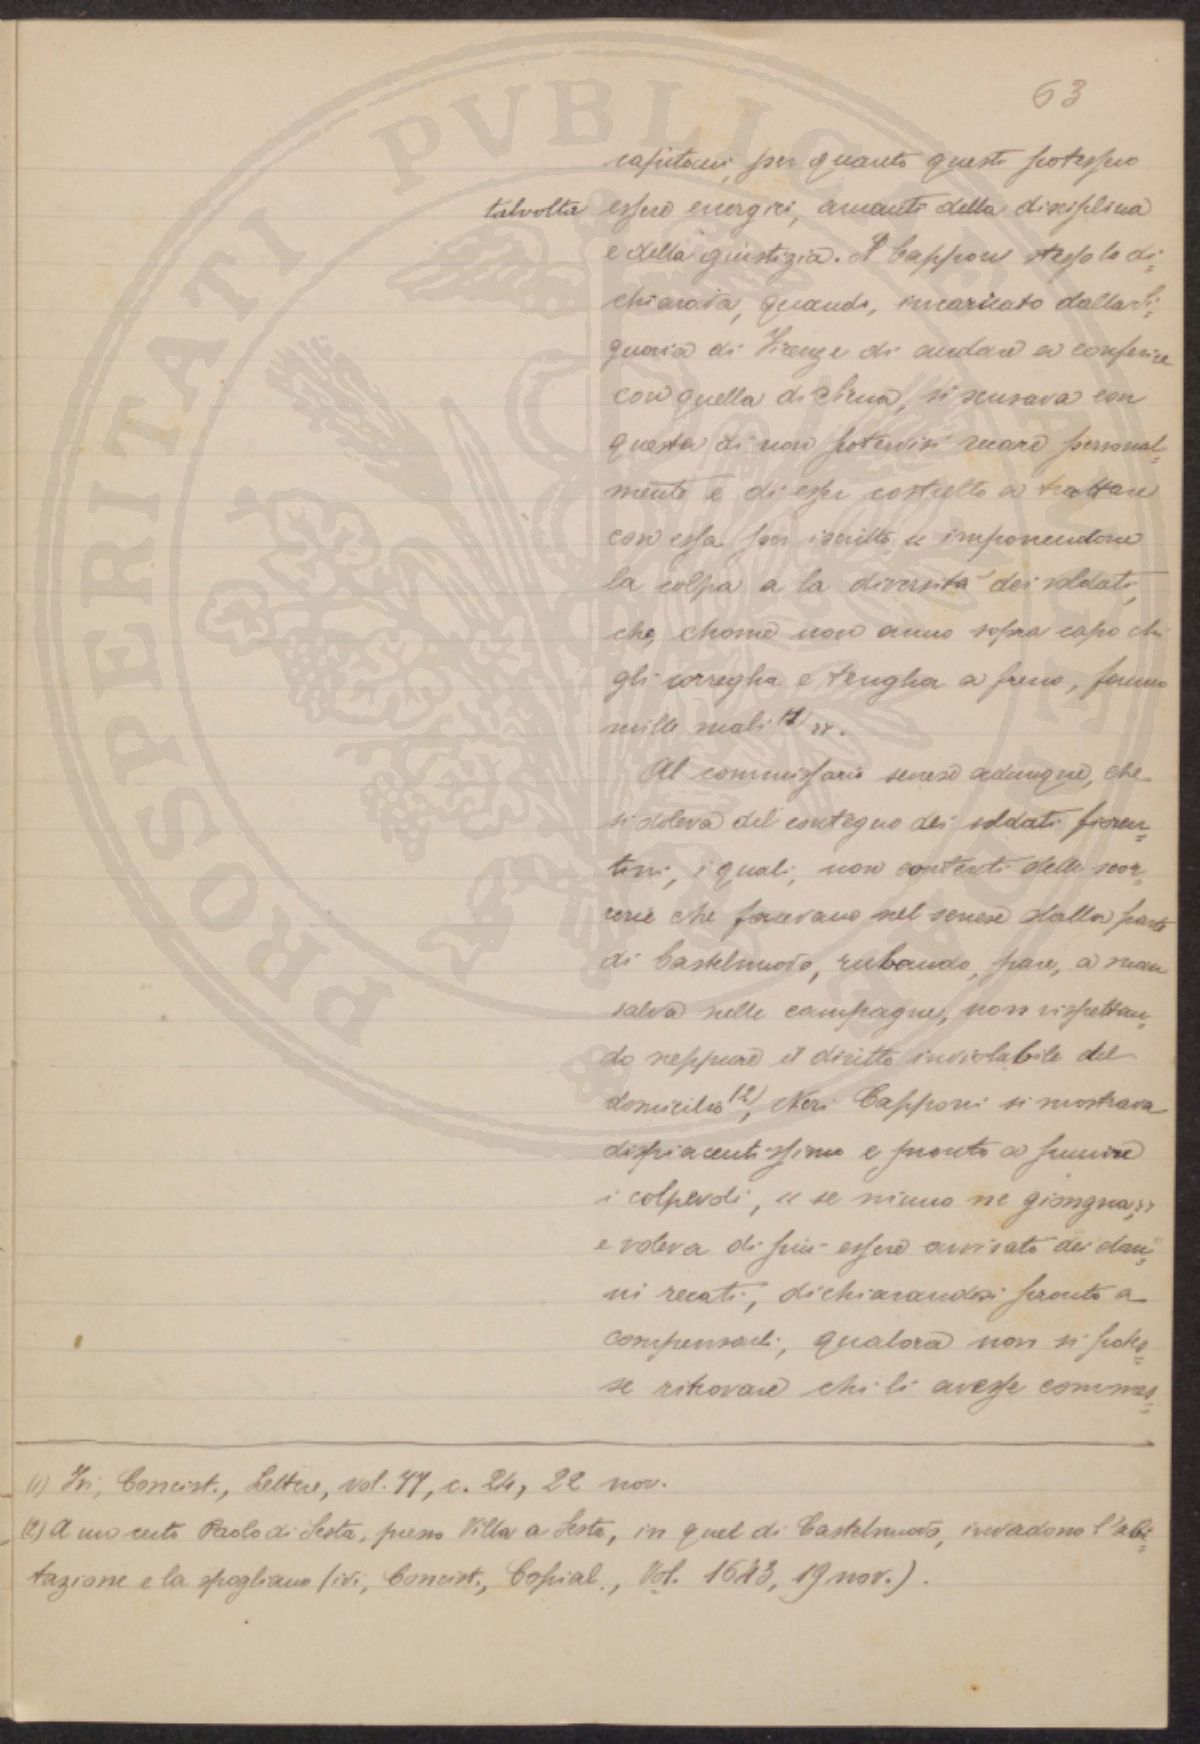 63
capitani, per quanto questi potessero
talvolta essere energici, amanti della disciplina
e della giustizia. Il Capponi stesso lo di-
chiarava, quando, incaricato dalla Si-
gnoria di Firenze di andare a conferire
con quella di Siena, si scusava con
questa di non potervisi recare personal-
mente e di esser costretto a trattare
con essa per iscritto, « imponendone
la colpa a la diversità dei soldati,
che, chome non anno sopra capo chi
gli corregha e tengha a freno, fanno
mille mali (1) ».
Al commissario senese adunque, che
si doleva del contegno dei soldati fioren-
tini, i quali, non contenti delle scor-
rerie che facevano nel senese dalla parte
di Castelnuovo, rubando, pare, a man
salva nelle campagne, non rispettan-
do neppure il diritto inviolabile del
domicilio (2), Neri Capponi si mostrava
dispiacentissimo e pronto a punire
i colpevoli, « se niuno ne giongna »
e voleva di più essere avvisato dei dan-
ni recati, dichiarandosi pronto a
compensarli, qualora non si potes-
se ritrovare chi li avesse commes-
(1) Ivi, Concist., Lettere, vol. 77, c. 24, 22 nov.
(2) A uno certo Paolo di Sesta, presso Villa a Sesta, in quel di Castelnuovo, invadono l'abi-
tazione e la spogliano (ivi, Concist., Copial., Vol. 1643, 19 nov.).
PROSPERITATI PVBLICAE